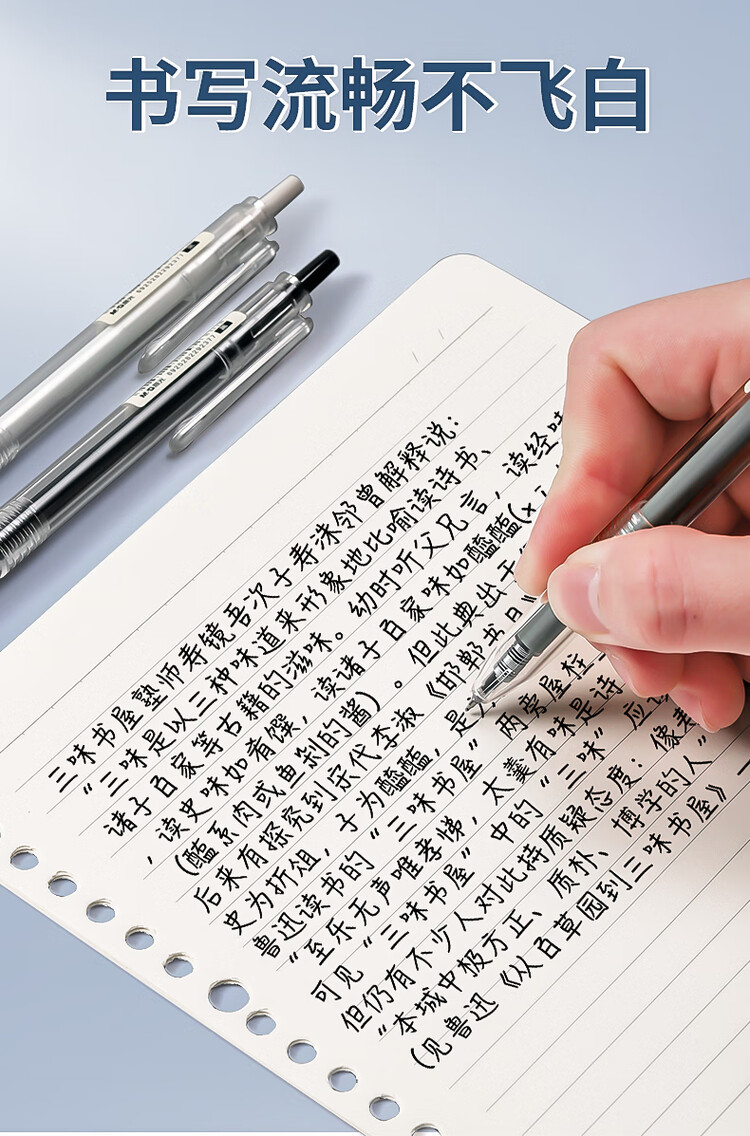 书写流畅不飞白
M&G晨光 6925282292377
M&G晨光 6925282292377
三味书屋塾师寿镜吾次子寿洙邻曾解释说：
“三味是以三种味道来形象地比喻读诗书、
诸子百家等古籍的滋味。幼时听父兄言，读经味
，读史味如肴馔，读诸子百家味如醯醢(x
(醢系肉或鱼剁的酱)。但此典出于
后来有探究到宋代李淑《邯郸书目》
史为折俎，子为醯醢，是
鲁迅读书的“三味书屋”两旁屋柱
“至乐无声唯孝悌，太羹有味是诗
可见“三味书屋”中的“三味”应该
但仍有不少人对此持质疑态度：像寿
“本城中极方正、质朴、博学的人”
(见鲁迅《从百草园到三味书屋》